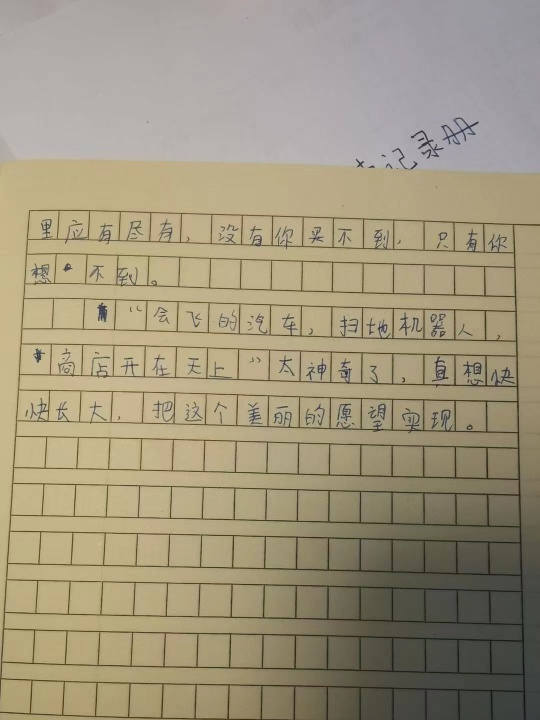 记录册
里应有尽有，没有你买不到，只有你
想不到。
“会飞的汽车，扫地机器人，
商店开在天上”太神奇了，真想快
快长大，把这个美丽的愿望实现。